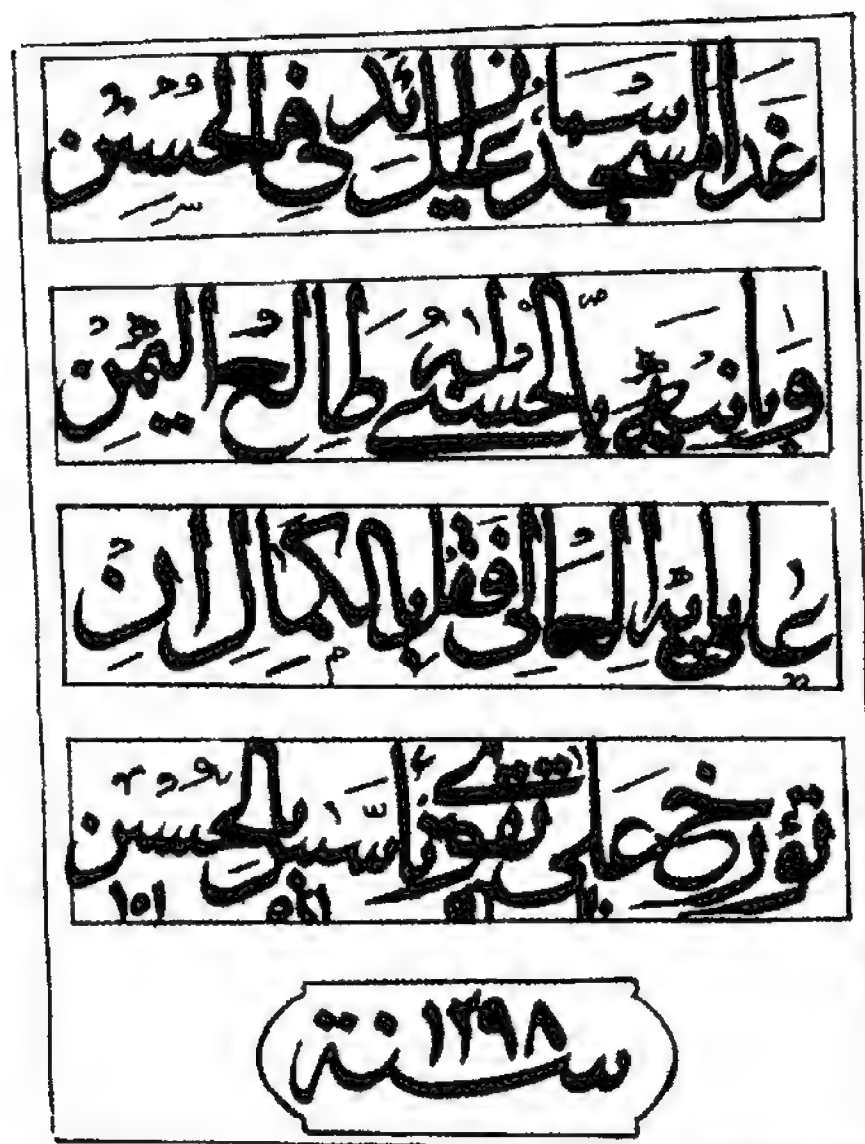 غدا مسجد اسماعيل زائد في الحسن
وبانيه بالحسنى له طالع اليمن
على بابه العالى فقل بالكمال ان
تؤرخ على تقوى تأسس بالحسن
١١٠ ٥١٦ ٥٢١ ١٥١
سنة ١٢٩٨